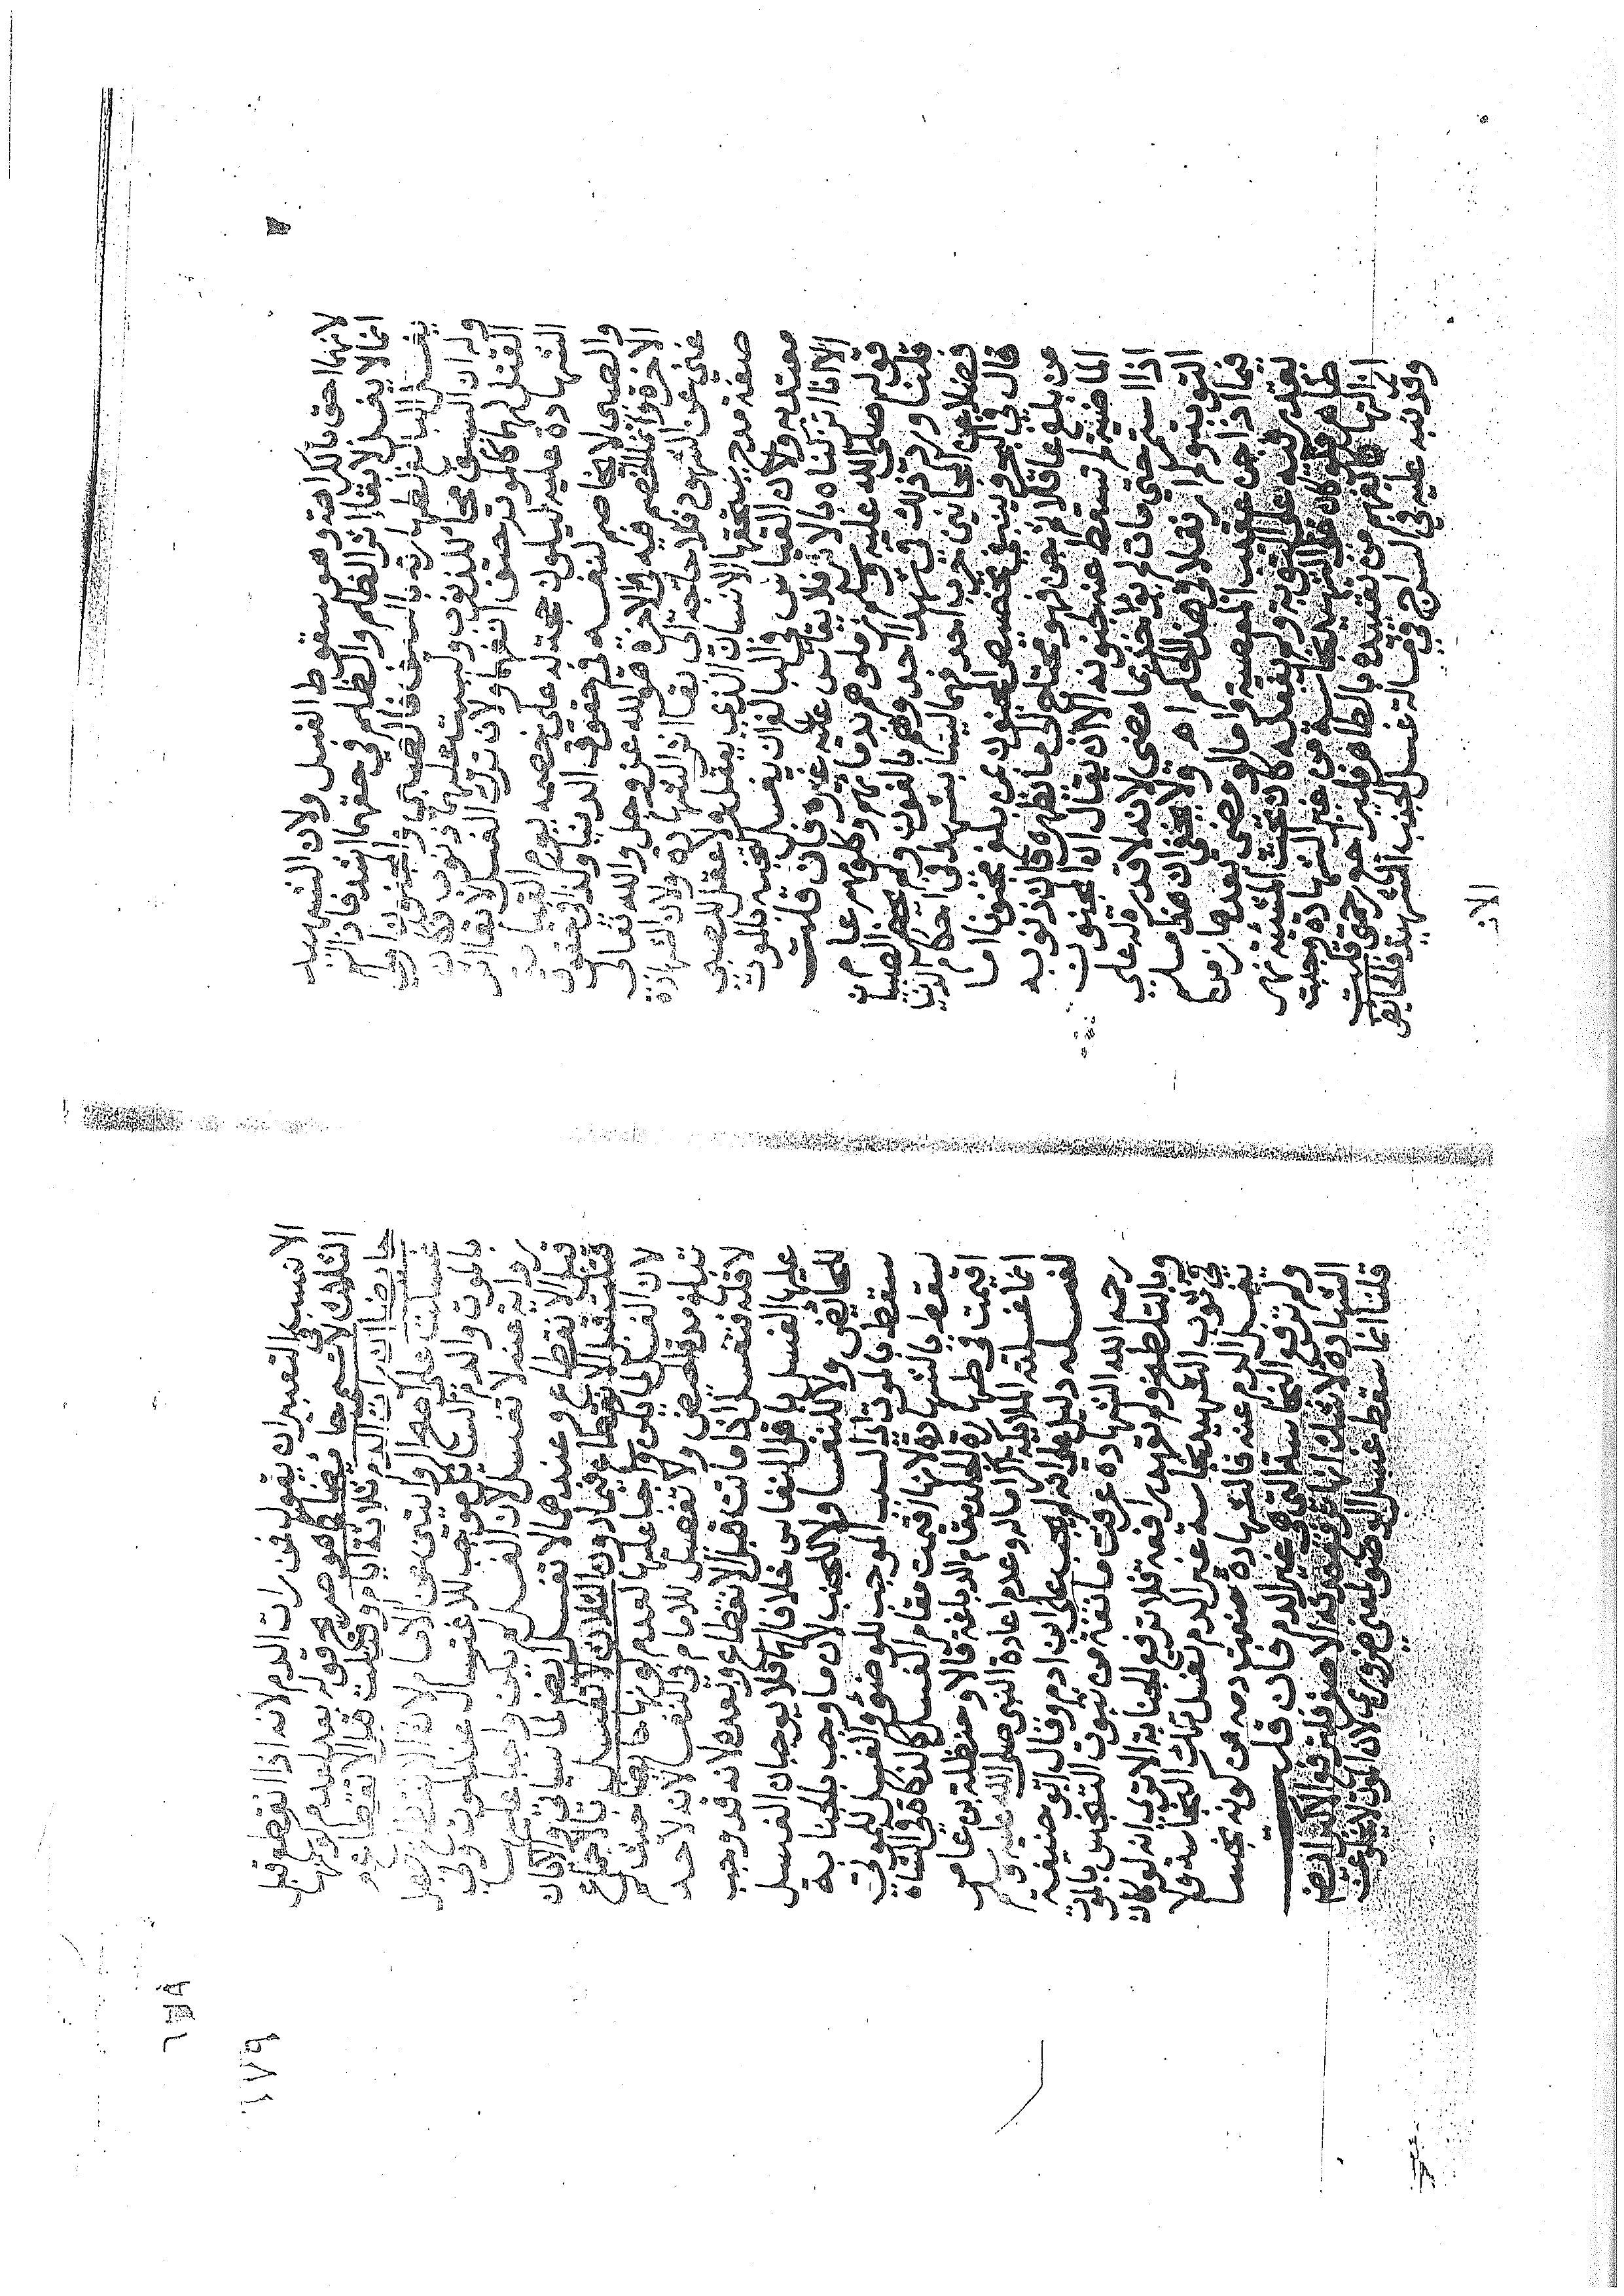 لانهما احق بالكرامة وهو سقوط الغسل ولان الشهيد
انما لا يغسل لابقاء اثر الظلم والظلم في حقهما اشد فاذا لم
يغسل البالغ لطهارته بالسيف فالصبي والمجنون اولى
وله ان السيف محاء للذنوب وليست عليهما ذنوب فكان
القتل لهما كالموت حتف انفهما ولان ترك الغسل لابقاء اثر
الشهادة عليه ليكون حجة له على خصمه يوم القيامة
والصبي لا يخاصم لنفسه في حقوق الدنيا ولذا في حقوق
الاخرة وانما الخصم فيه في الاخرة هو الله عز وجل والله تعالى
غني عن الشهود فلا حاجة الى بقاء اثر الشهادة ولان الشهادة
صفة مدح يستحقها الانسان الذي يعقل ولا عقل للصبي
معتد به ولان القياس في البالغ ان يغسل لتنجسه بالموت
الا انا تركناه بالاثر فلا يقاس عليه غيره فان قلت
قوله صلى الله عليه وسلم زملوهم بدمائهم وكلومهم عام
قلنا ورد ذلك في شهداء احد وهم بالغون ولم يحضر الصبيان
فضلا عن المجانين حرب احد فهما ليسا بشهيد في احكام الدنيا
قال في البحر وينبغي تخصيص المجنون بمن بلغ مجنونا اما
من بلغ عاقلا ثم جن فهو محتاج الى ما يطهره فان ذنوبه
الماضية لم تسقط عنه بجنونه الا ان يقال ان المجنون
اذا استمر حتى مات لم يؤاخذ بما مضى لانه لا قدرة له على
التوبة ولم ار نقلا في هذا الحكم اه ولا يخفى ان هذا مسلم
فيما اذا جن عقيب المعصية واما لو مضى بعدها زمن
يقدر فيه على التوبة ولم يفعله كان تحت المشيئة نهر
طاهر فلو كان على الشهيد نجاسة من غير الشهادة وجبت
ازالتها كما يفهم من تقييده بالطاهر حموي قلت
وقد نبه عليه في السراج في مسالة غسل الجنب الشهيد فالحائض
الان
١٧٩
الانسب في التعبير ان يقول فمن رات الدم لانه اذا انقطع قبل
الثلاث لا تسمى حائضا كما هو صريح قوله بعد لعدم كونها
حائضا ان رات الدم ثلاثة ايام وقتلت قبل الانقطاع او
غسلت على اصح الروايتين عن الامام لان الانقطاع يحصل
بالموت والدم السائل موجب للاغتسال عند الموت وفي
رواية عنه لا تغسل لان الغسل لم يكن واجبا عليها
قبل الانقطاع وعندهما لا تغسل ايضا لما سياتي وان كان
قتلت قبل الانقطاع فيما دون الثلاث لا تغسل بالاجماع
لان الغسل لم يكن واجبا عليها لعدم كونها حائضا حيث لم
تبلغ مدة الحيض ولا تفصيل للامام في النفساء لانه لا حد
لاقله فتغسل اذا ماتت قبل الانقطاع وبعده لانه قد وجب
عليها الغسل باقل النفاس خلافا لهما فلا يوجبان الغسل
للحائض ولا للنفساء ولا للجنب لان ما وجب بالجنابة
سقط بالموت اي السبب الموجب للوضوء والغسل للموت
سقط بالشهادة لانها اقيمت مقام الغسل كالذكاة في الشاة
اقيمت في طهارة الجلد مقام الدباغة قالا وحنظلة بن عامر
انما غسلته الملائكة اكراما له وعدم اعادة النبي صلى الله عليه وسلم
لغسله دليل على انه لم يجب على ابن ادم وقال ابو حنيفة
رحمه الله الشهادة عرفت مانعة من ثبوت التنجس بالموت
وبالتلطخ ولم تعهد رافعة فلا ترفع الجنابة الا ترى انه لو كان
في ثوب الشهيد نجاسة غير الدم تغسل تلك النجاسة ولا
يغسل الدم عنه فالشهادة منعت دمه من كونه نجسا
ولم ترفع النجاسة التي هي غير الدم فان قلت
الشهادة لا شك انها ترفع حدثه الاصغر فلترفع الاكبر ايضا
قلنا انما سقط غسل الوضوء لمعنى ضروري لان الموت لا يخلو عن